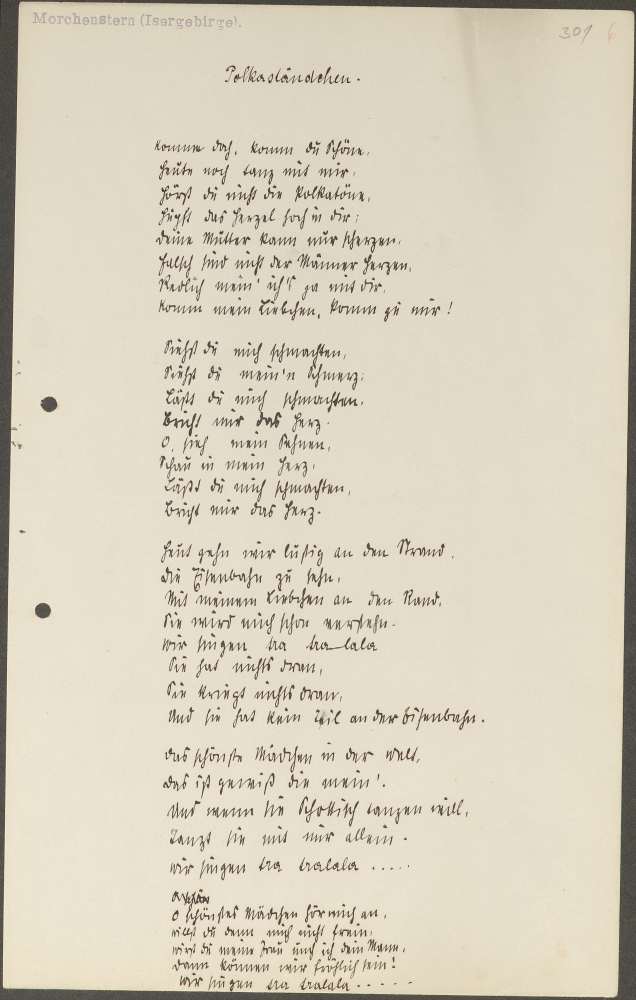 Morchenstern (Isergebirge).
301 6
Polkaständchen.
Komm doch, komm du Schöne,
Heute noch tanz mit mir,
Hörst du nicht die Polkatöne,
Hüpft das Herzel hoch in dir;
Deine Mutter kann nur scherzen,
Falsch sind nicht der Männer Herzen,
Redlich mein' ich's ja mit dir,
Komm mein Liebchen, komm zu mir!
Siehst du mich schmachten,
Siehst du mein'n Schmerz;
Läßt du mich schmachten,
Bricht mir das Herz.
O, sieh mein Sehnen,
Schau in mein Herz,
Läßt du mich schmachten,
Bricht mir das Herz.
Heut gehn wir lustig an den Strand,
Die Eisenbahn zu sehn,
Mit meinem Liebchen an den Rand,
Sie wird mich schon verstehn.
Wir singen tra tra-lala
Sie hat nichts dran,
Sie kriegt nichts dran,
Und sie hat kein Teil an der Eisenbahn.
Das schönste Mädchen in der Welt,
Das ist gewiß die mein'.
Und wenn sie Schottisch tanzen will,
Tanzt sie mit mir allein.
Wir singen tra tralala .....
O schönstes Mädchen hör mich an,
willst du denn mich nicht frein,
wirst du meine Frau und ich dein Mann,
Dann können wir fröhlich sein!
Wir singen tra tralala......